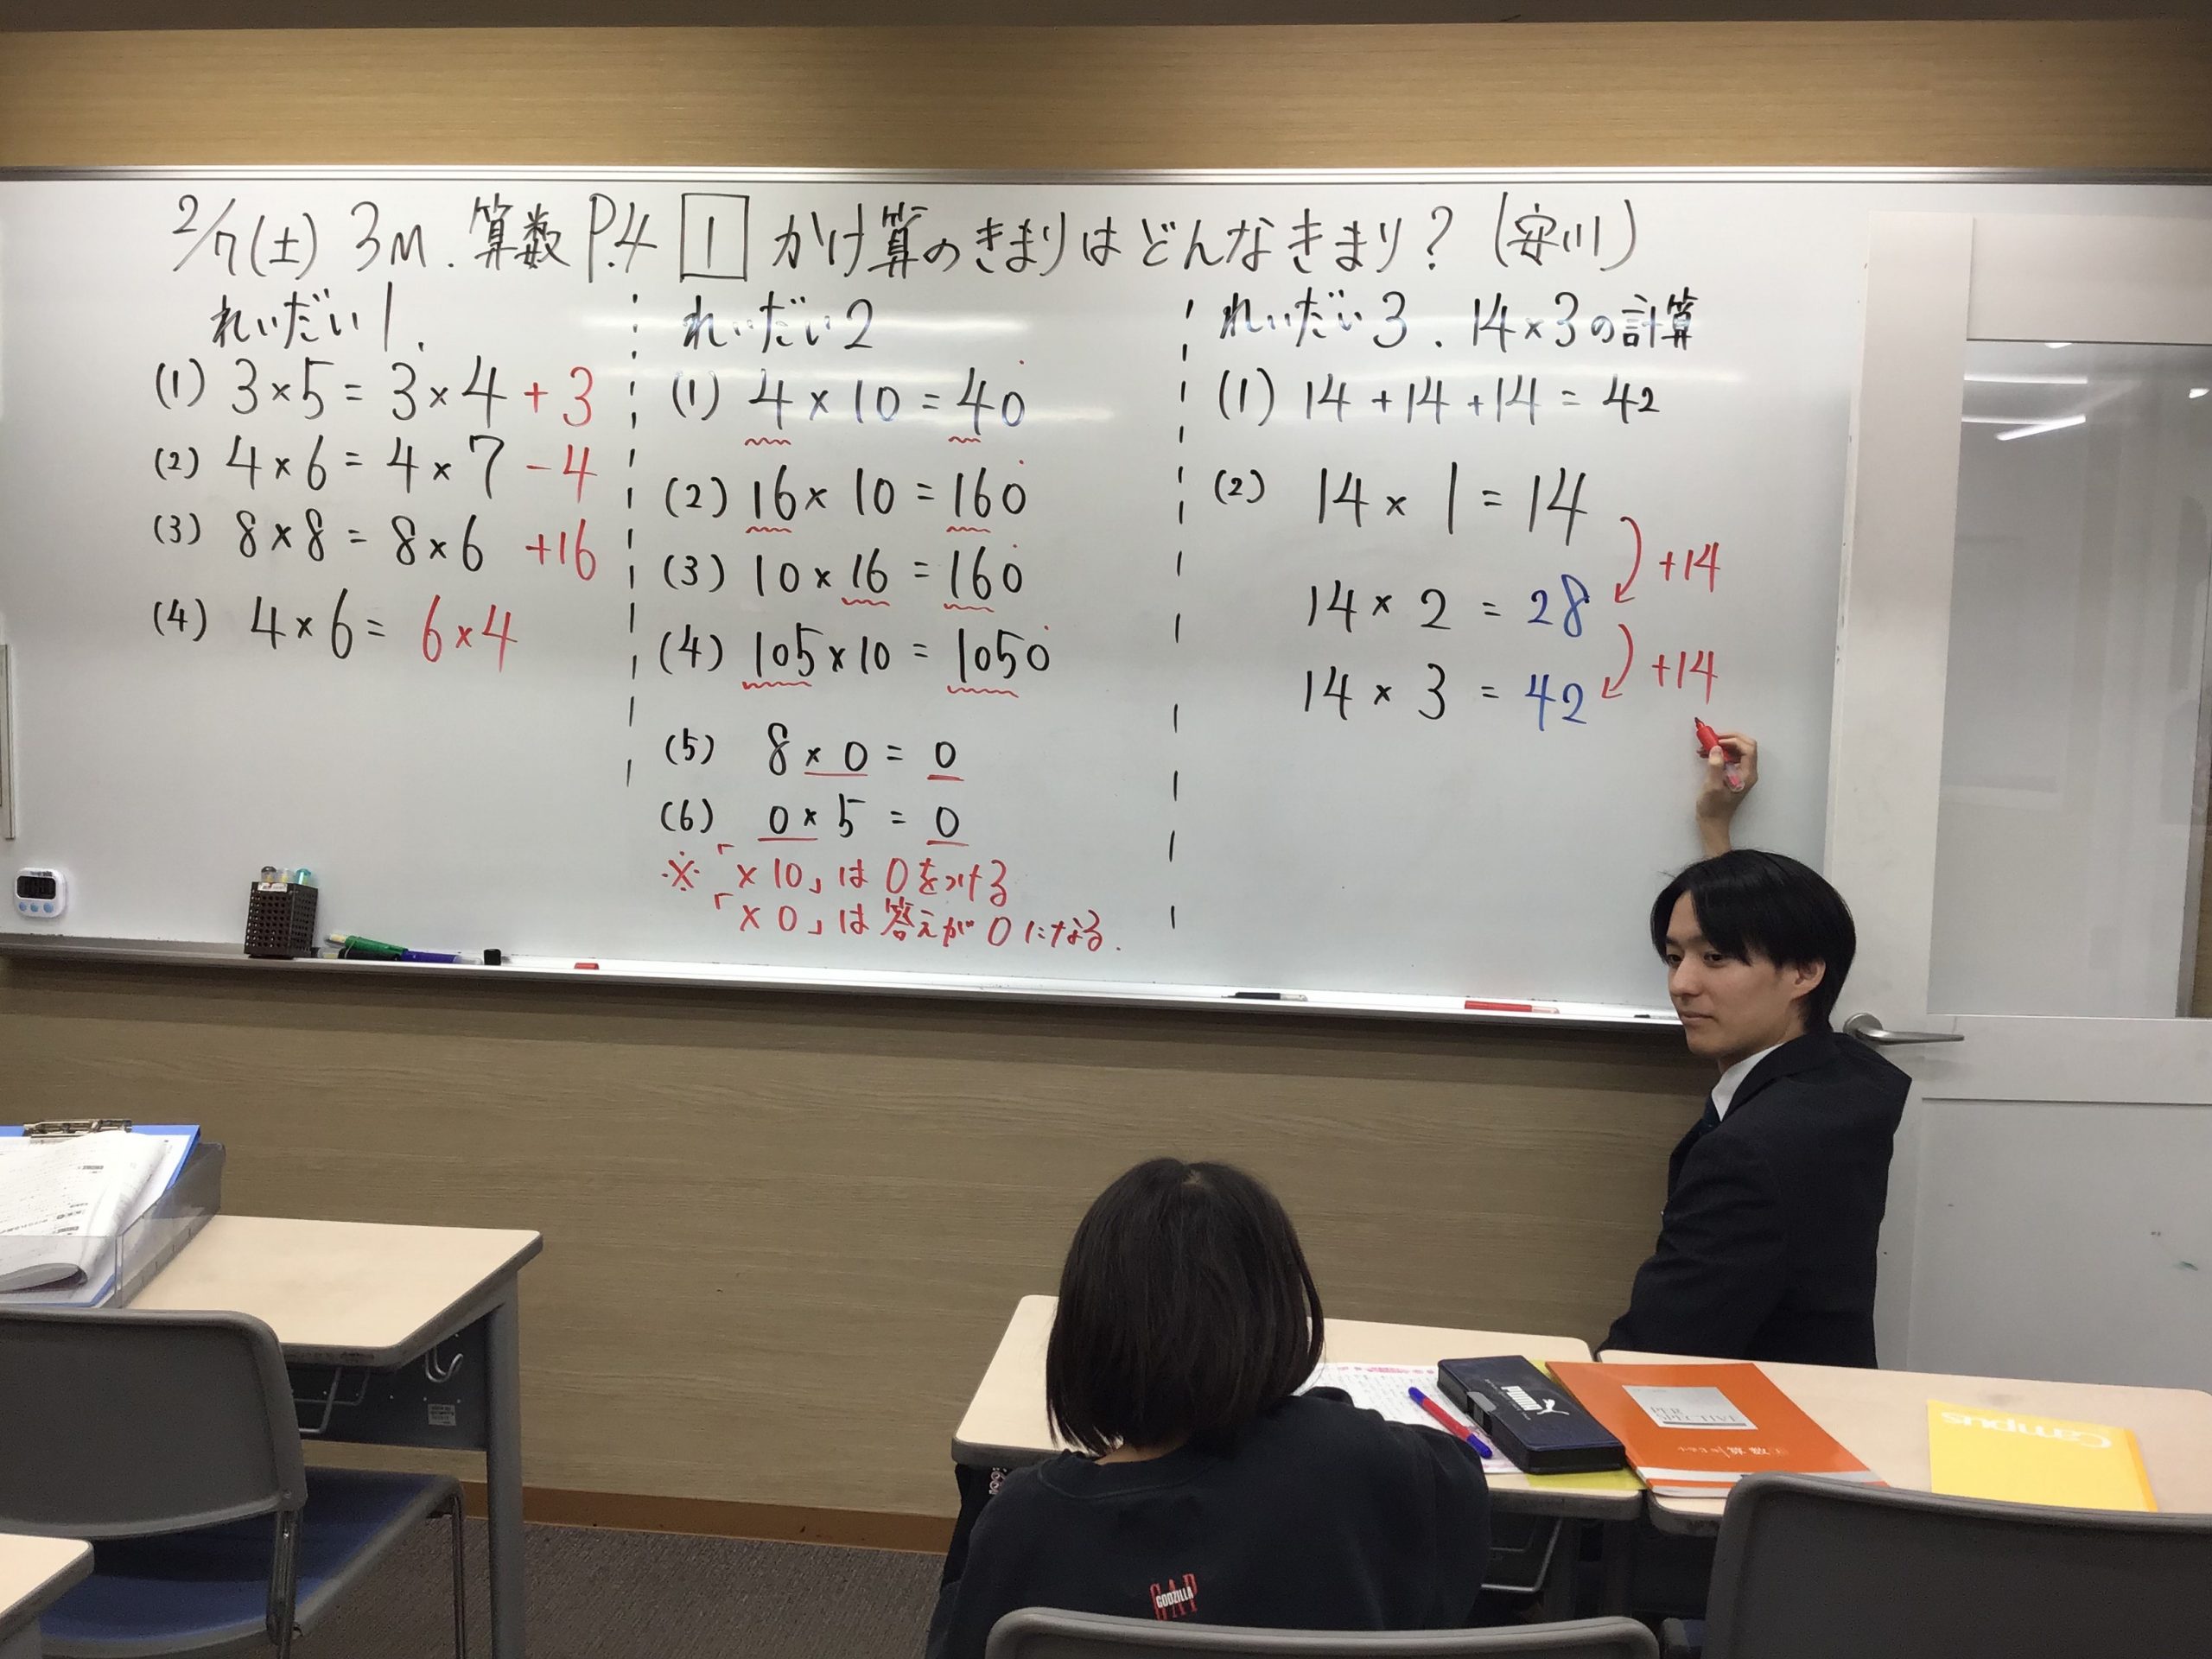 2/7(土) 3M. 算数 P.4 1 かけ算のきまりはどんなきまり? (安川)
れいだい1.
(1) 3×5= 3×4+3
(2) 4×6= 4×7-4
(3) 8×8= 8×6 +16
(4) 4×6= 6×4
れいだい2
(1) 4×10=40
(2) 16×10=160
(3) 10×16=160
(4) 105×10=1050
(5) 8×0=0
(6) 0×5=0
※「×10」は0をつける
「×0」は答えが0になる.
れいだい3. 14×3の計算
(1) 14+14+14=42
(2) 14×1=14
+14
14×2=28
+14
14×3=42
PUMA
Campus
GAP
GODZILLA